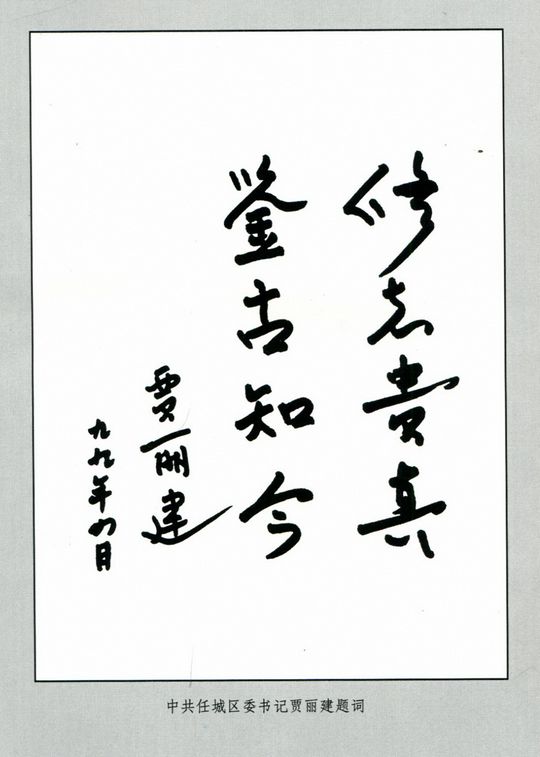 修志贵真
鉴古知今
贾丽建
九九年四月
中共任城区委书记贾丽建题词